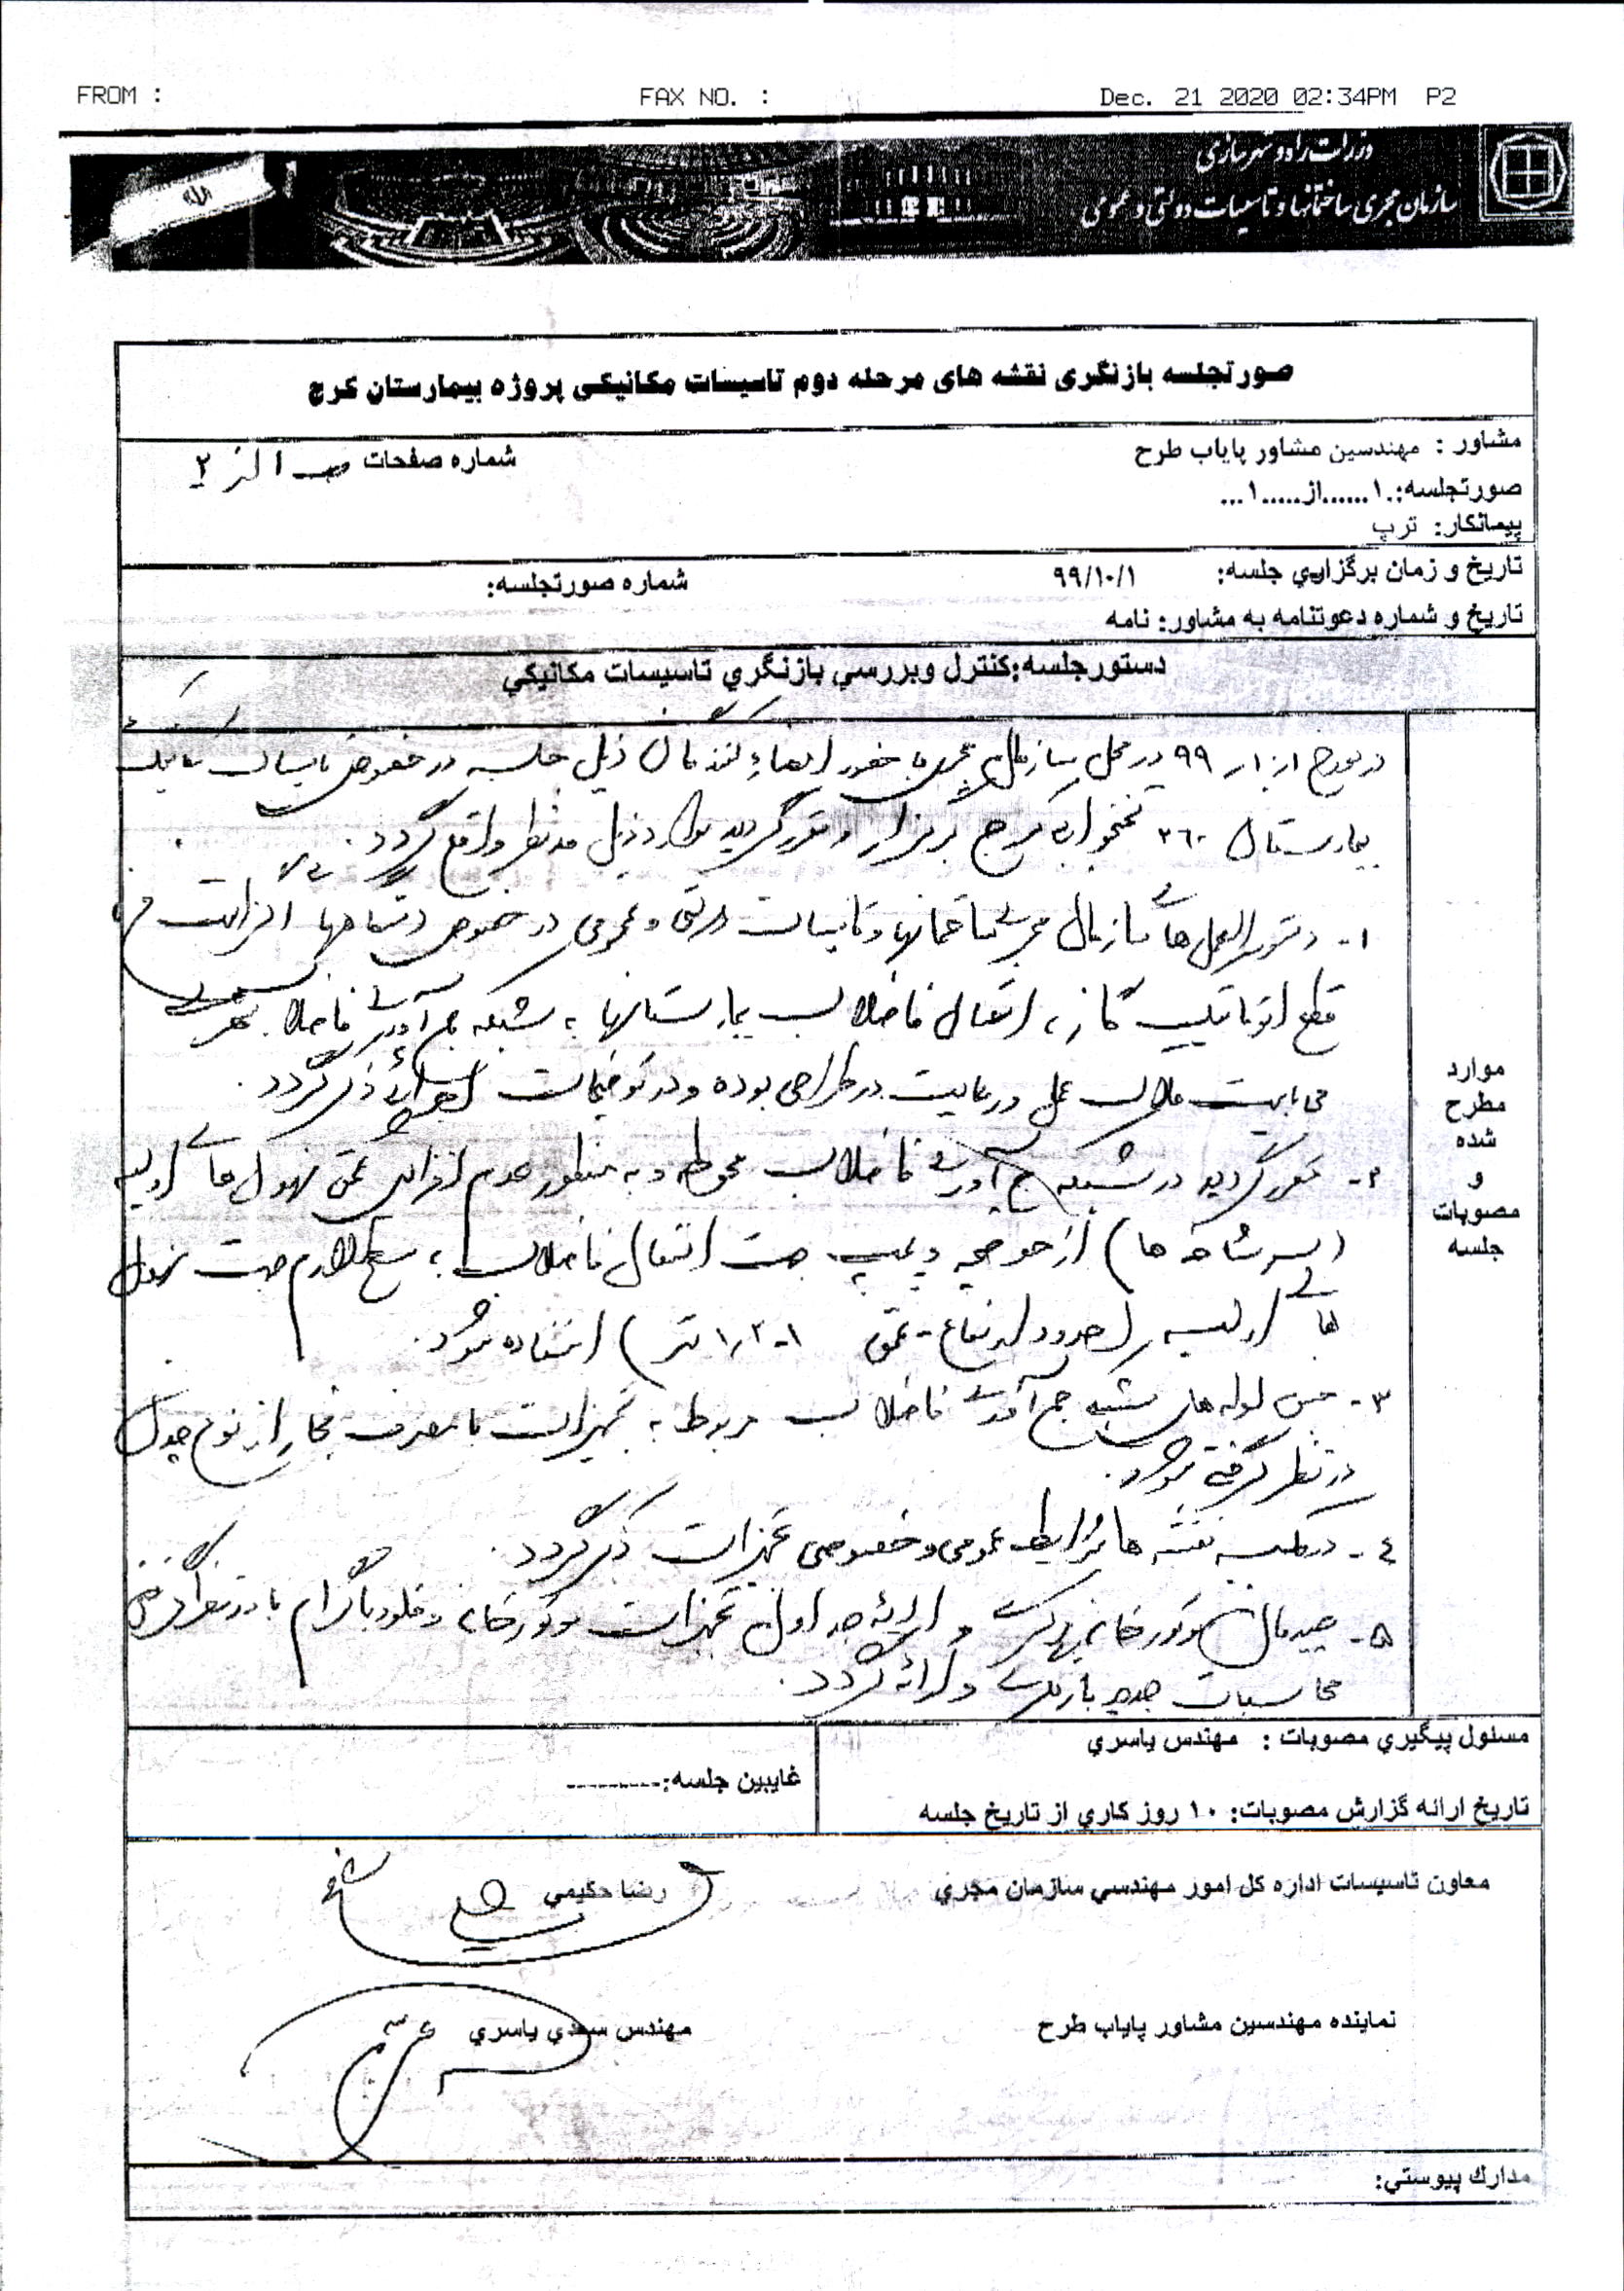 FROM :
FAX NO. :
Dec. 21 2020 02:34PM P2
وزارت راه و شهرسازی
سازمان مجری ساختمانها و تاسیسات دولتی و عمومی
صورتجلسه بازنگری نقشه های مرحله دوم تاسیسات مکانیکی پروژه بیمارستان کرج
مشاور : مهندسین مشاور پایاب طرح
شماره صفحات ص ۱ از ۲
صورتجلسه:.۱......از.....۱...
پیمانکار: ترپ
تاریخ و زمان برگزاري جلسه: ۹۹/۱۰/۱
شماره صورتجلسه:
تاریخ و شماره دعوتنامه به مشاور: نامه
دستورجلسه:کنترل وبررسي بازنگري تاسیسات مکانیکي
موارد
مطرح
شده
و
مصوبات
جلسه
در مورخ ۹۹ در محل سازمان مجری با حضور امضاء کنندگان ذیل جلسه در خصوص تاسیسات مکانیک
بیمارستان ۲۶۰ تختخوابی کرج برگزار و مقرر گردید موارد ذیل مدنظر واقع گردد.
۱- دستورالعمل های سازمان مجری ساختمانها و تاسیسات دولتی و عمومی در خصوص دستگاهها
قطع اتوماتیک گاز، انتقال فاضلاب بیمارستانها به شبکه جمع آوری فاضلاب شهری
می بایست ملاک عمل و رعایت در طراحی بوده و در توضیحات ذکر گردد.
۲- مقرر گردید در شبکه جمع آوری فاضلاب محوطه و به منظور عدم افزایش عمق منهول های اولیه
(سرشاخه ها) از حوضچه و پمپ جهت انتقال فاضلاب به سطح لازم جهت منهول
های اولیه (حدود ارتفاع - عمق ۱-۱٫۲ متر) استفاده شود.
۳- جنس لوله های شبکه جمع آوری فاضلاب مربوط به تجهیزات با مصرف بخار از نوع چدن
در نظر گرفته شود.
٤- در کلیه نقشه ها شرایط عمومی و خصوصی تجهیزات ذکر گردد.
۵- چیدمان موتورخانه و ارائه جداول تجهیزات موتورخانه و فلودیاگرام با در نظر گرفتن
محاسبات جدید بازنگری و ارائه گردد.
مسئول پیگیري مصوبات : مهندس یاسري
غایبین جلسه:----------
تاریخ ارائه گزارش مصوبات: ۱۰ روز کاري از تاریخ جلسه
معاون تاسیسات اداره کل امور مهندسي سازمان مجري
رضا حکیمي
نماینده مهندسین مشاور پایاب طرح
مهندس سعدي یاسري
مدارك پیوستي: